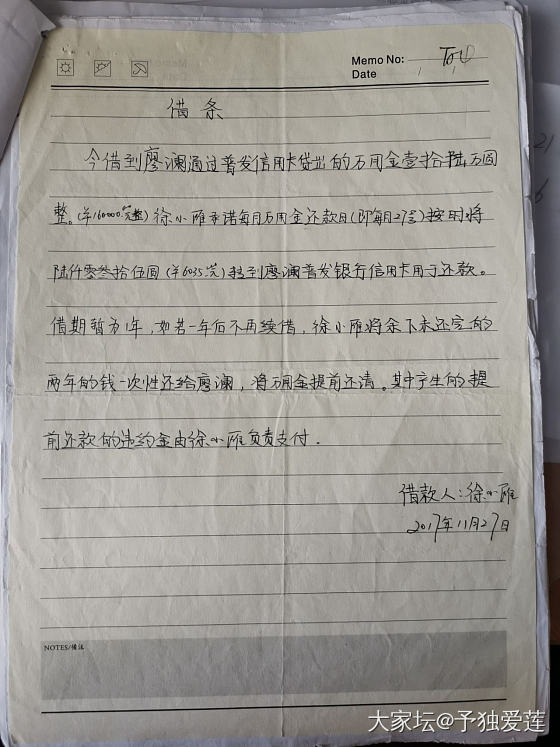 Memo No:
Date
借条
今借到廖澜通过普发信用卡贷出的万用金壹拾陆万圆
整。(¥160000.00元整)徐小雁承诺每月万用金还款日(即每月27号)按时将
陆仟零叁拾伍圆(¥6035元)转到廖澜普发银行信用卡用于还款。
借期暂为1年,如若一年后不再续借,徐小雁将余下未还完的
两年的钱一次性还给廖澜,将万用金提前还清。其中产生的提
前还款的违约金由徐小雁负责支付.
借款人:徐小雁
2017年11月27日
NOTES/备注
大家坛@予独爱莲